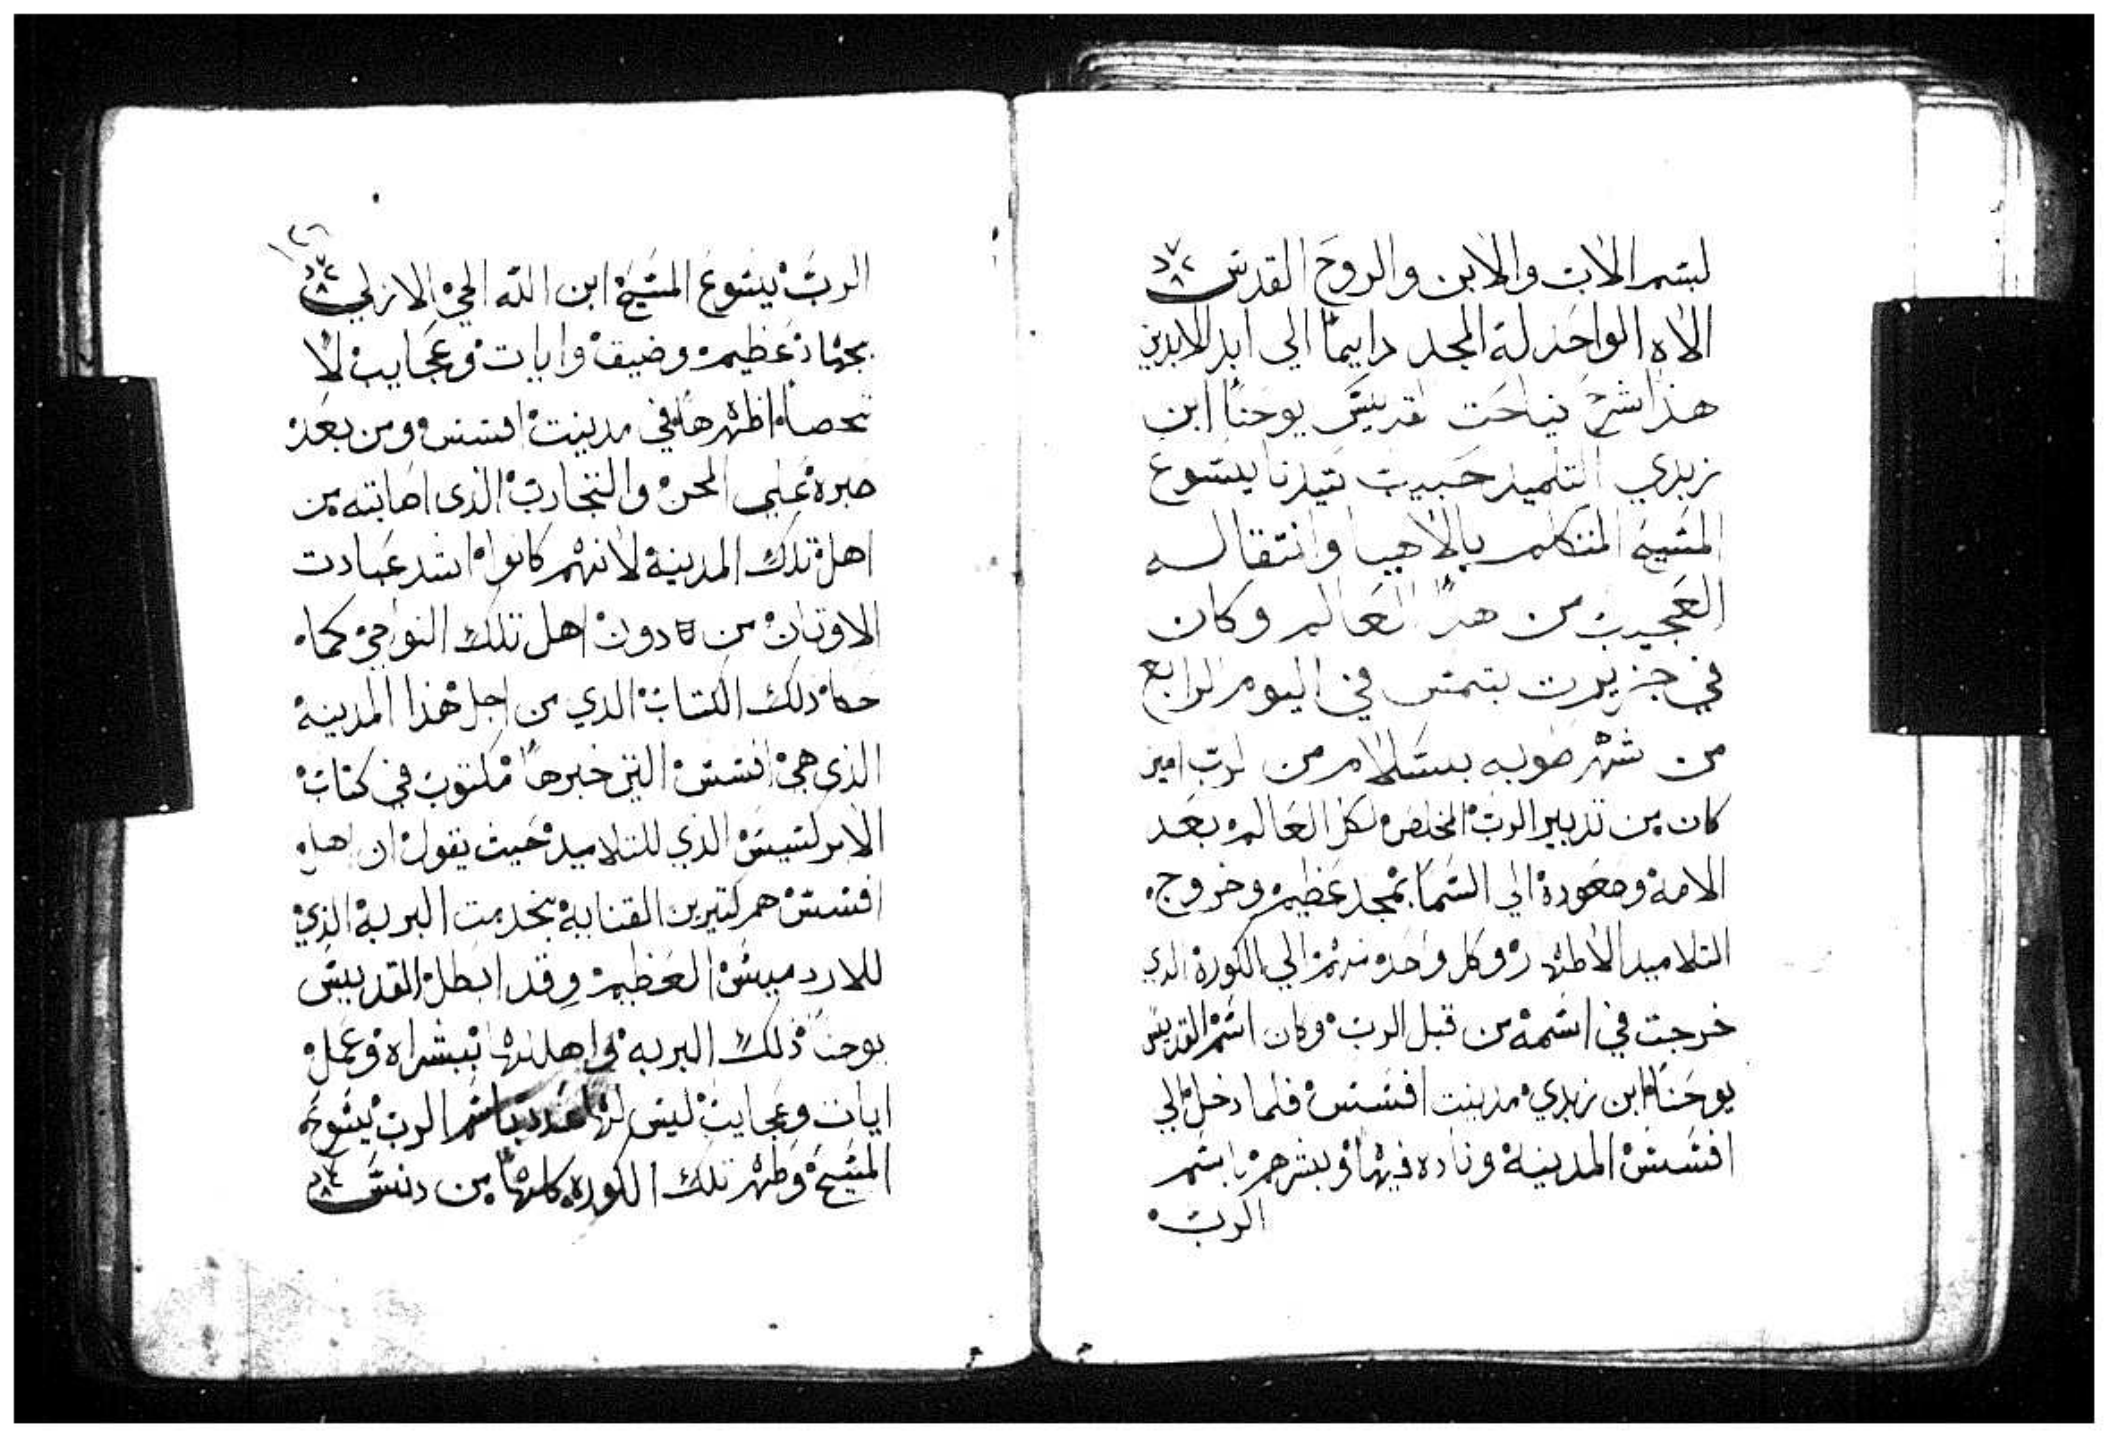 بسم الاب والابن والروح القدس
الاه الواحد له المجد دايمًا الي ابد الابدين
هذا شرح نياحت القديس يوحنا ابن
زبدي التلميد حبيب سيدنا يسوع
المسيح المتكلم بالالاهيا وانتقاله
العجيب من هدا العالم وكان
في جزيرت بتمس في اليوم الرابع
من شهر طوبه بسلام من الرب امين
كان من تدبير الرب المخلص لكل العالم بعد
الامه وصعوده الي السما بمجد عظيم وخروج
التلاميد الاطهار وكل واحد منهم الي الكورة الدي
خرجت في اسمه من قبل الرب وكان اسم القديس
يوحنا ابن زبدي مدينت افسس فلما دخل الي
افسس المدينة وناده فيها وبشرهم باسم
الرب
١٢٦
الرب يسوع المسيح ابن الله الحي الازلي
بجهاد عظيم وضيق وايات وعجايب لا
تحصا اظهرها في مدينت افسس ومن بعد
صبره علي المحن والتجارب الذى اصابته من
اهل تلك المدينة لانهم كانوا اشد عبادت
الاوتان من دون اهل تلك النواحي كما
حكا دلك الكتاب الدي من اجل هذا المدينة
الذى هي افسس التي خبرها مكتوب في كتاب
الابركسيس الذي للتلاميد حيث يقول ان اهل
افسس هم كتيرين القنايه بخدمت البربة الذي
للاردميس العظيم وقد ابطل القديس
يوحنا ذلك البربه واهلها ببشراه وعمل
ايات وعجايب ليس لها عدد باسم الرب يسوع
المسيح وطهر تلك الكورة كلها من دنس